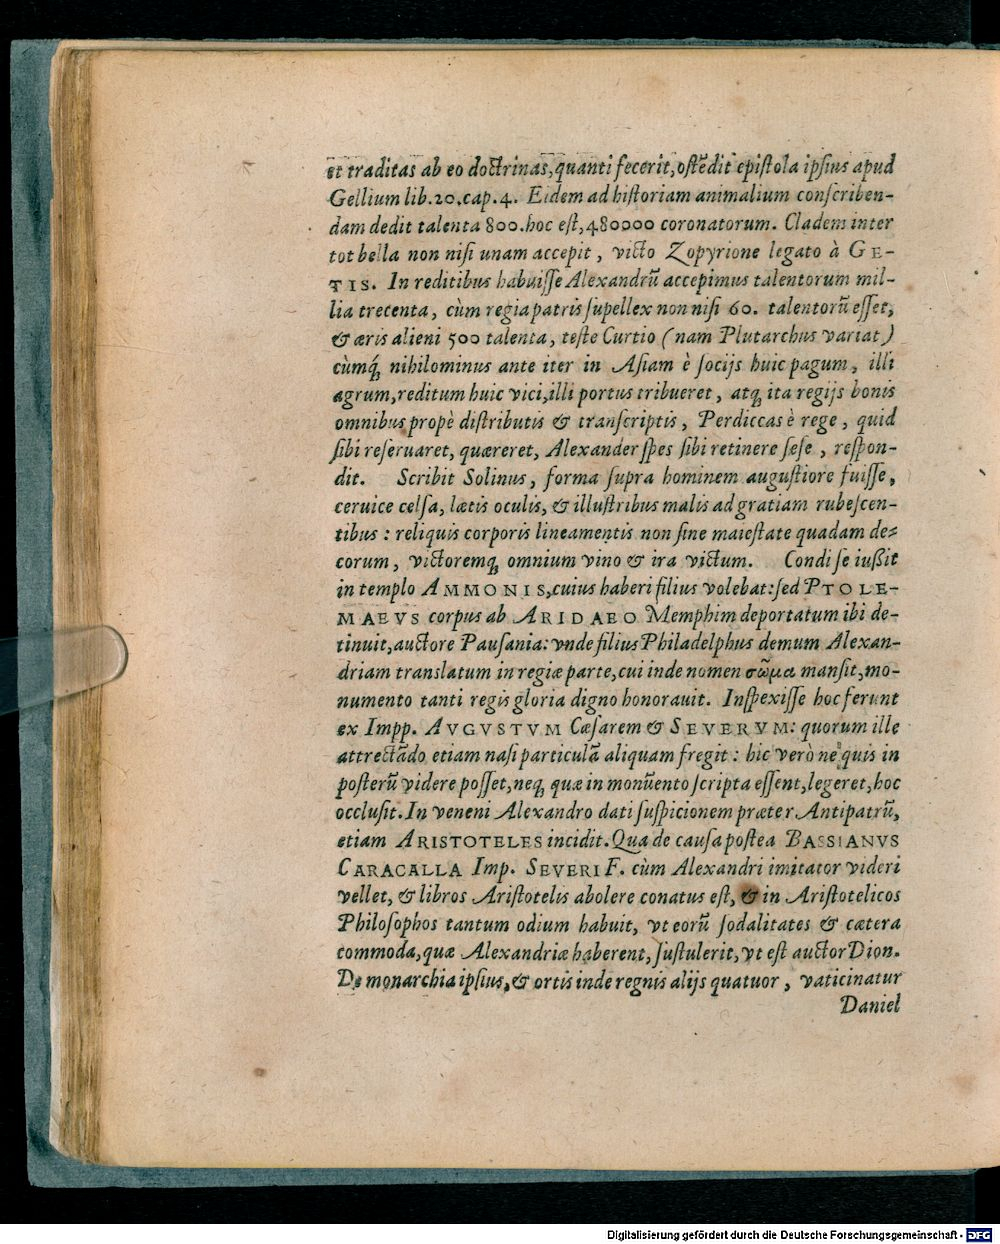 et traditas ab eo doctrinas, quanti fecerit, ostẽdit epistola ipsius apud
Gellium lib. 20. cap. 4. Eidem ad historiam animalium conscriben-
dam dedit talenta 800. hoc est, 480000 coronatorum. Cladem inter
tot bella non nisi unam accepit, victo Zopyrione legato à GE-
TIS. In reditibus habuisse Alexandrũ accepimus talentorum mil-
lia trecenta, cùm regia patris supellex non nisi 60. talentorũ esset,
& æris alieni 500 talenta, teste Curtio (nam Plutarchus variat)
cùmq́; nihilominus ante iter in Asiam è socijs huic pagum, illi
agrum, reditum huic vici, illi portus tribueret, atq; ita regijs bonis
omnibus propè distributis & transcriptis, Perdiccas è rege, quid
sibi reseruaret, quæreret, Alexander spes sibi retinere sese, respon-
dit. Scribit Solinus, forma supra hominem augustiore fuisse,
ceruice celsa, lætis oculis, & illustribus malis ad gratiam rubescen-
tibus: reliquis corporis lineamentis non sine maiestate quadam de-
corum, victoremq; omnium vino & ira victum. Condi se iußit
in templo AMMONIS, cuius haberi filius volebat: sed PTOLE-
MAEVS corpus ab ARIDAEO Memphim deportatum ibi de-
tinuit, auctore Pausania: vnde filius Philadelphus demum Alexan-
driam translatum in regiæ parte, cui inde nomen σῶμα mansit, mo-
numento tanti regis gloria digno honorauit. Inspexisse hoc ferunt
ex Impp. AVGVSTVM Cæsarem & SEVERVM: quorum ille
attrectãdo etiam nasi particulã aliquam fregit: hic verò ne quis in
posterũ videre posset, neq; quæ in monũento scripta essent, legeret, hoc
occlusit. In veneni Alexandro dati suspicionem præter Antipatrũ,
etiam ARISTOTELES incidit. Qua de causa postea BASSIANVS
CARACALLA Imp. SEVERI F. cùm Alexandri imitator videri
vellet, & libros Aristotelis abolere conatus est, & in Aristotelicos
Philosophos tantum odium habuit, vt eorũ sodalitates & cætera
commoda, quæ Alexandriæ haberent, sustulerit, vt est auctor Dion.
De monarchia ipsius, & ortis inde regnis alijs quatuor, vaticinatur
Daniel
Digitalisierung gefördert durch die Deutsche Forschungsgemeinschaft - DFG